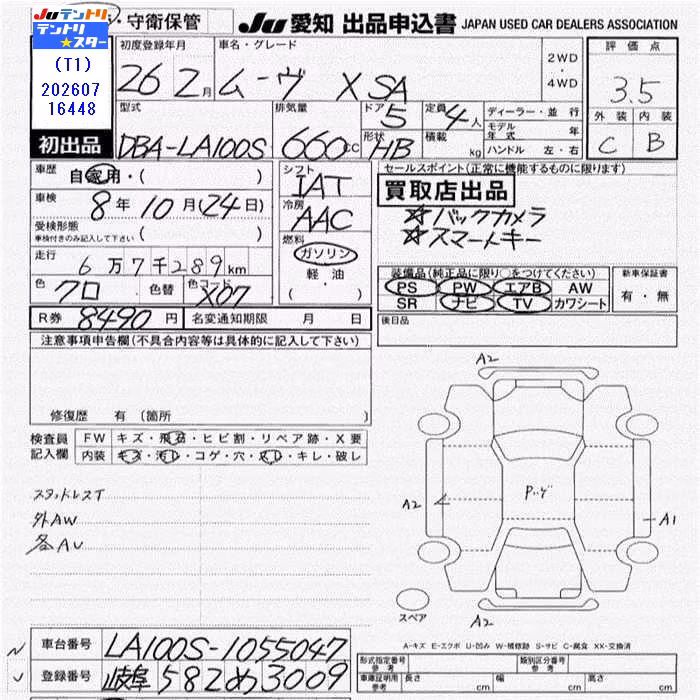 Juテントリ
テントリ☆スター
(T1)
202607
16448
・守衛保管
JU 愛知 出品申込書 JAPAN USED CAR DEALERS ASSOCIATION
初出品
初度登録年月
26 2月
車名・グレード
ムーヴ X SA
2WD
・
4WD
評価点
3.5
外装 内装
C B
型式
DBA-LA100S
排気量
660cc
ドア
5
形状
HB
定員
4人
積載
kg
ディーラー・並行
モデル年式 年
ハンドル 左・右
車歴
自家用・( )
車検
8年10月(24日)
受検形態
車検付きのみ記入して下さい ( )
走行
6万7千289km
色
クロ
色替
色コード
X07
シフト
IAT
冷房
AAC
燃料
ガソリン
軽・油
( ・ )
セールスポイント(正常に機能するものに限ります)
買取店出品
☆バックカメラ
☆スマートキー
装備品(純正品に限り○をつけてください)
PS PW エアB AW
SR ナビ TV カワシート
新車保証書
有・無
R券 8490円
名変通知期限 月 日
後日品
注意事項申告欄(不具合内容等は具体的に記入して下さい)
修復歴 有(箇所 )
検査員記入欄
FW キズ・飛石・ヒビ割・リペア跡・X要
内装 キズ・汚レ・コゲ・穴・スレ・キレ・破レ
スタッドレスT
外AW
各AU
A2
A2
A1
A2
スペア
A-キズ E-エクボ U-凹み W-補修跡 S-サビ C-腐食 XX-交換済
車台番号 LA100S-1055047
登録番号 岐阜582め3009
形式指定番号
参考
類別区分番号
参考
車庫証明用
参考
長さ cm
幅 cm
高さ cm